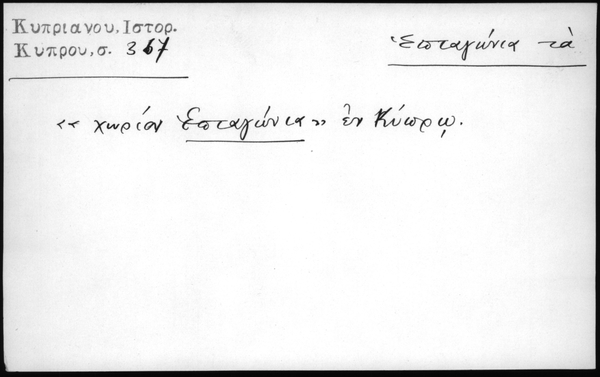 Κυπριανου, Ιστορ.
Κυπρου, σ. 367
Ἑπταγώνια τὰ
«χωρίον Ἑπταγώνια» ἐν Κύπρῳ.